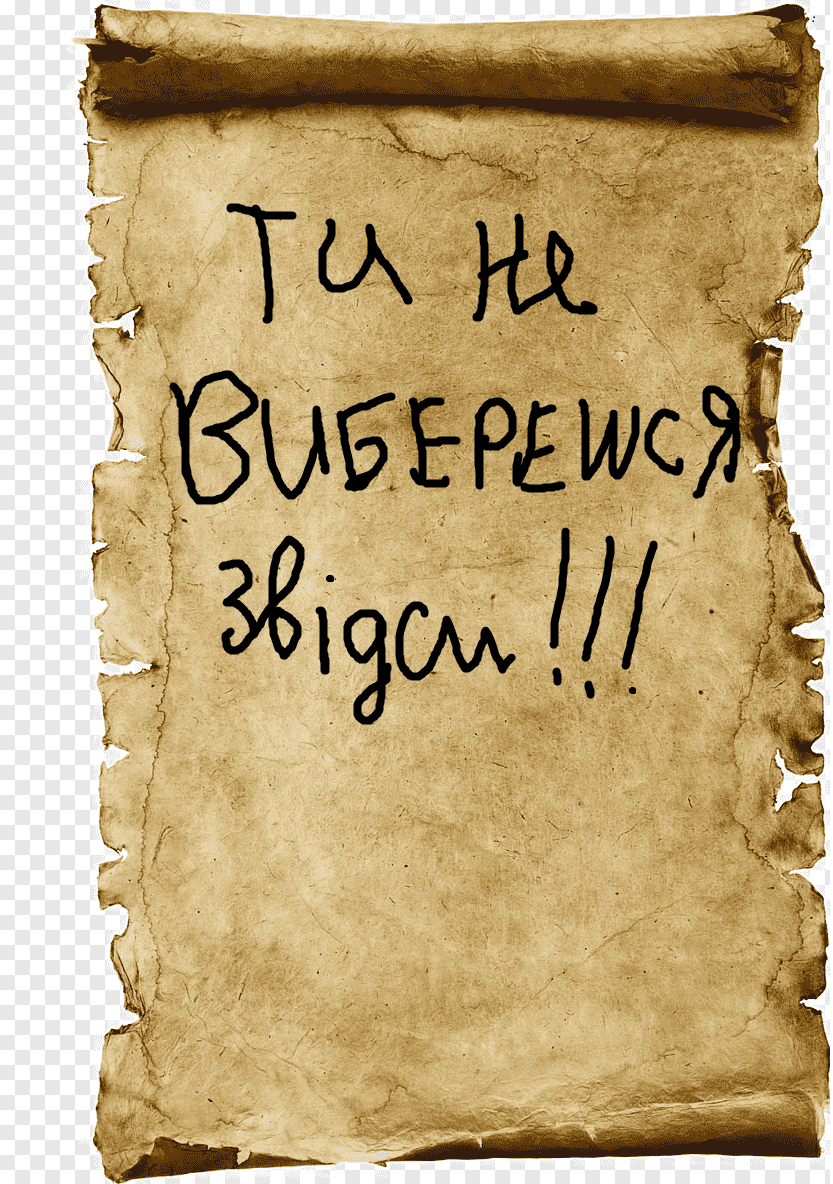 Ти не
ВИБЕРЕШСЯ
звідси!!!